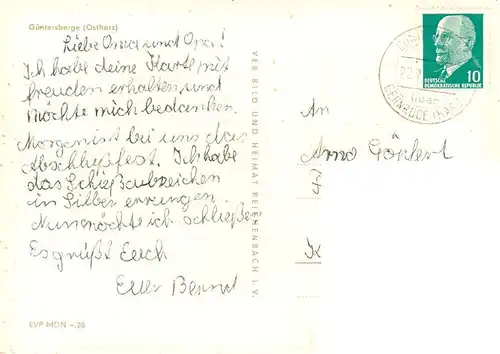 Güntersberge (Ostharz)
Liebe Oma und Opa!
Ich habe deine Karte mit
freuden erhalten und
möchte mich bedanken.
Morgen ist bei uns das
Abschlußfest. Ich habe
das Schießabzeichen
in Silber errungen.
Nun möchte ich schließen
Es grüßt Euch
Euer Bernd
EVP MDN -.20
VEB BILD UND HEIMAT REICHENBACH I. V.
DEUTSCHE
DEMOKRATISCHE REPUBLIK
10
über
GERNRODE (HARZ)
An
Arno